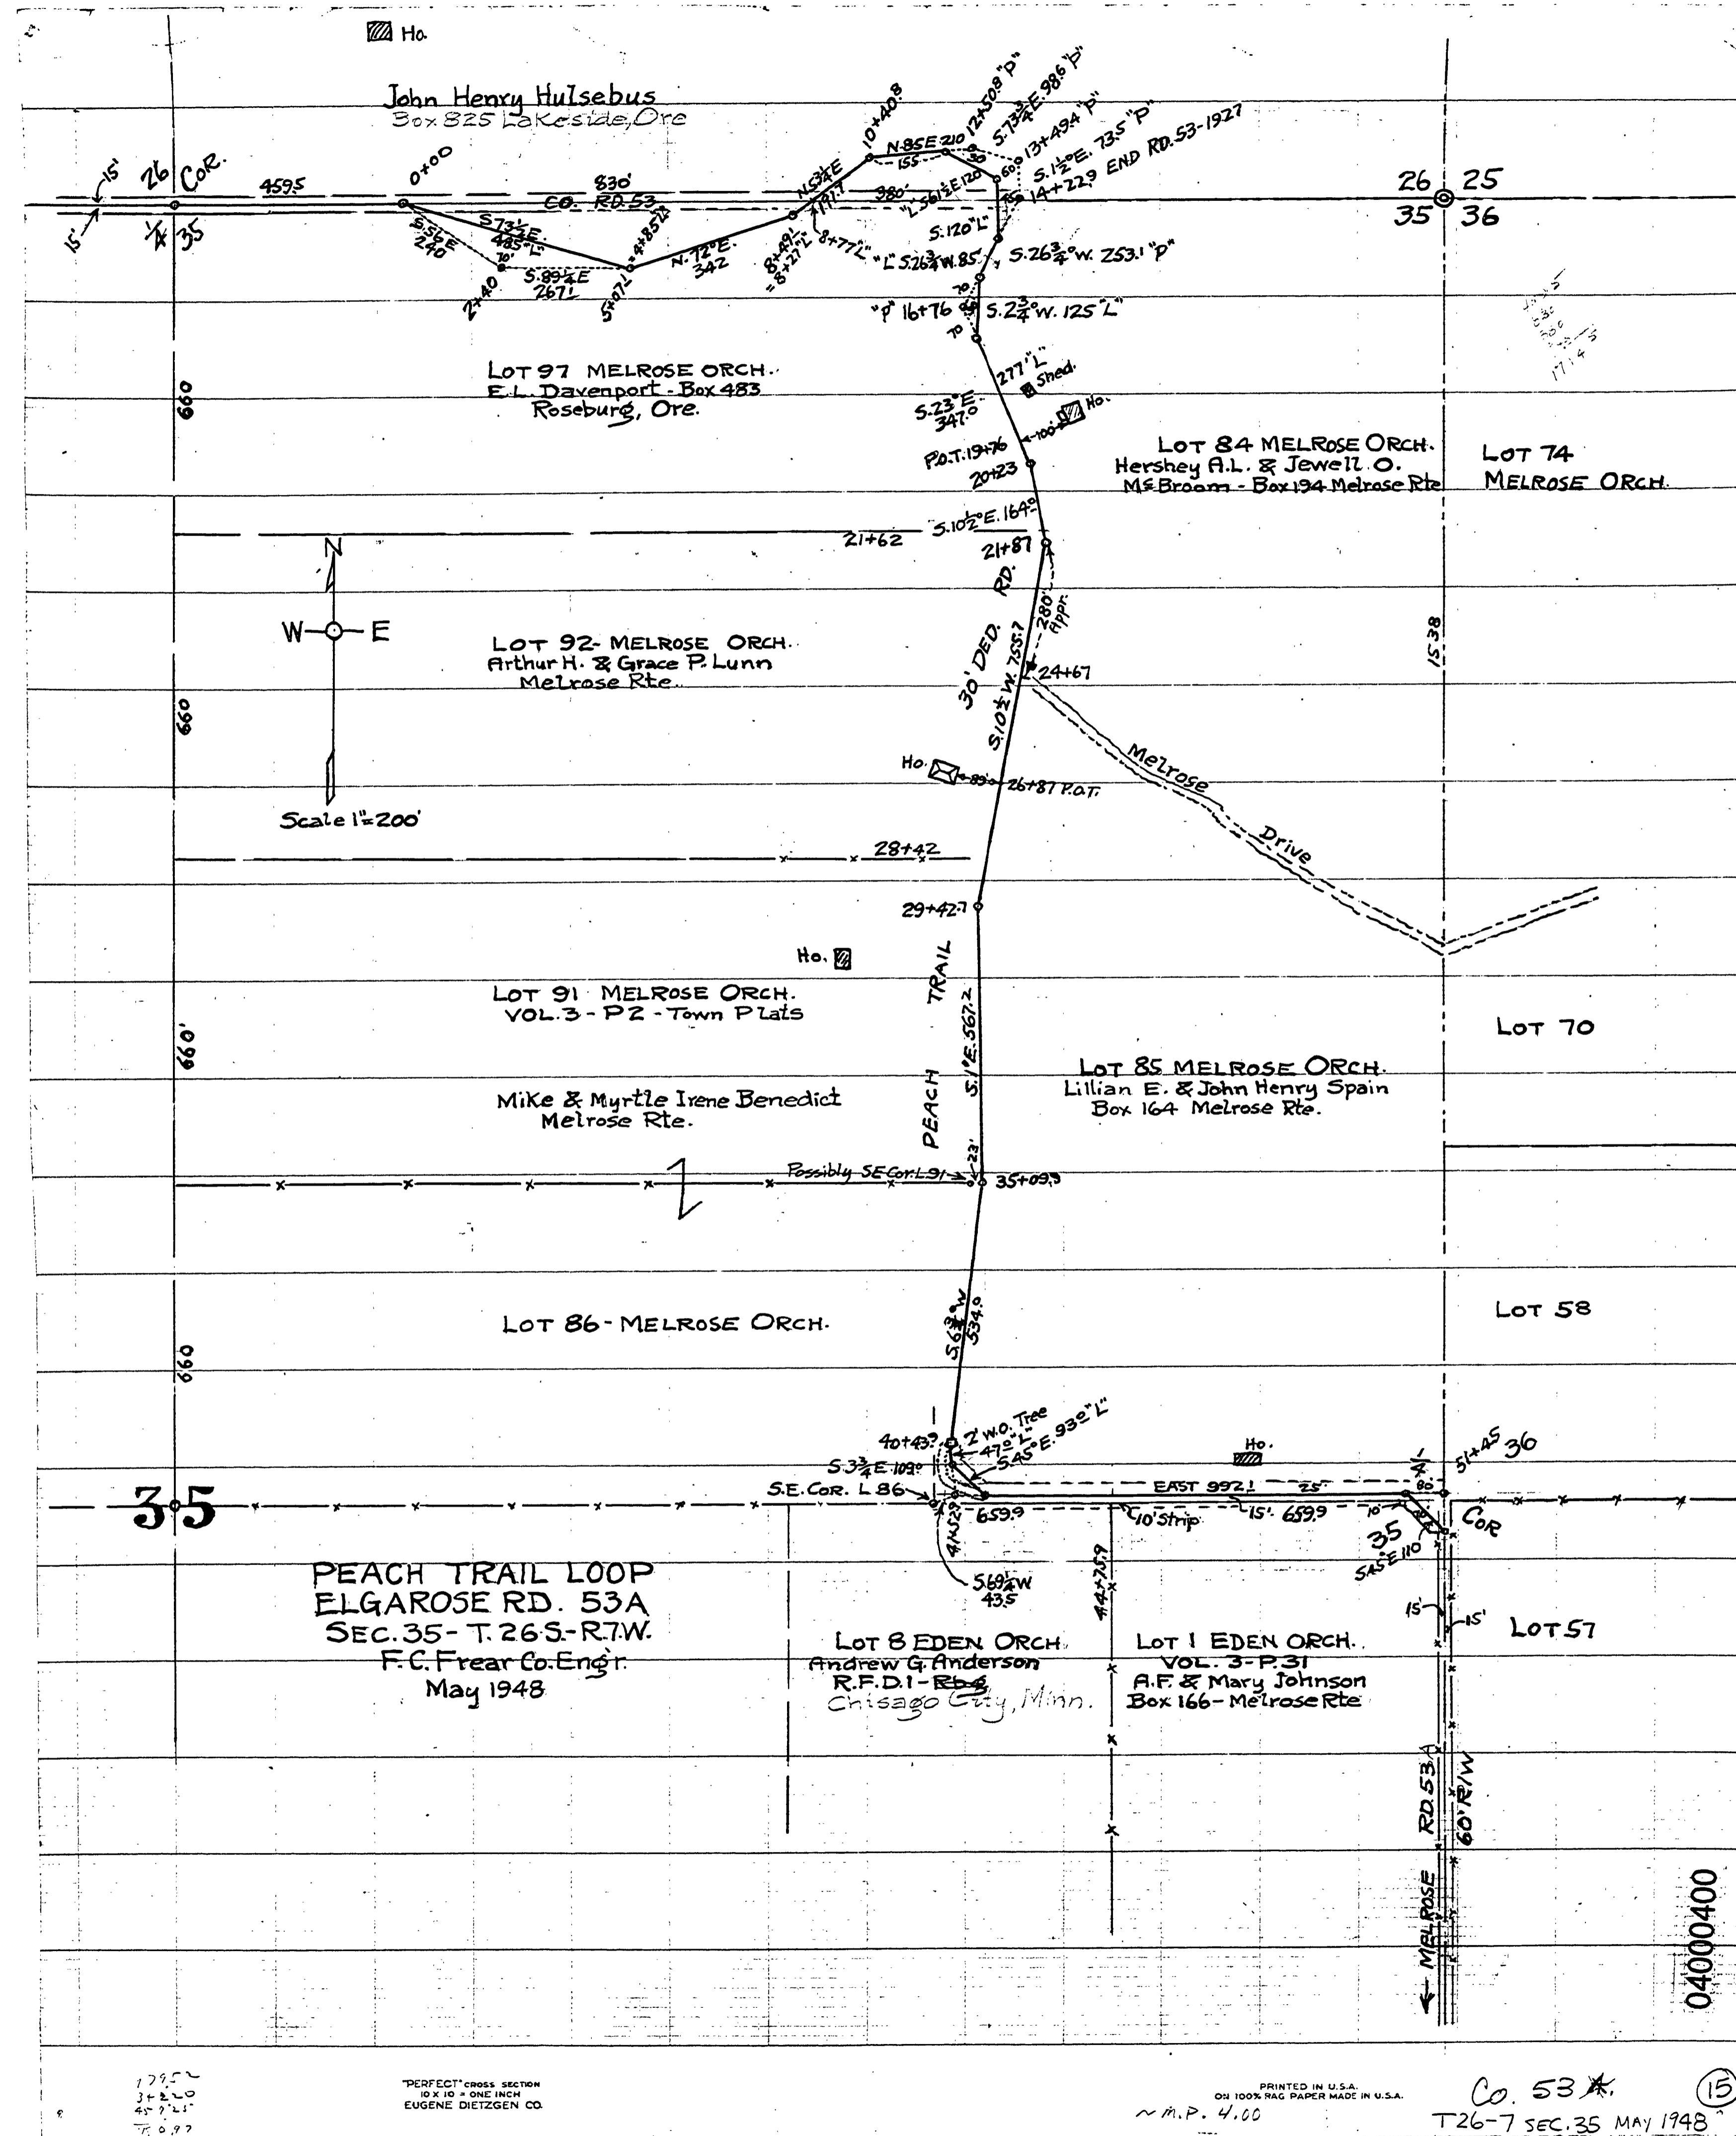 Ho.
John Henry Hulsebus
Box 825 Lakeside, Ore
15'
26
COR.
459.5
0+00
830'
CO. RD. 53
15'
1/4
35
S.56 E
240
S 73½ E.
485 "L"
70'
2+40
S.89¼ E
267.1
5+07.1
= 4+85 "L"
N. 72° E.
342
8+49.1
= 8+27 "L"
8+77 "L"
N.53¾ E
191.7
10+40.8
N.85 E 210
155
12+50.8 "P"
S.73¾ E. 98.6 "P"
30
13+49.4 "P"
60
S.1½° E. 73.5 "P"
14+22.9 END RD. 53-1927
380
"L" S61½ E. 120
S. 120 "L"
"L" S.26¾ W. 85'
S.26¾° W. 253.1 "P"
70
"P" 16+76
S.2¾° W. 125 "L"
70
26 25
35 36
LOT 97 MELROSE ORCH.
E.L. Davenport - Box 483
Roseburg, Ore.
660
277' "L"
Shed.
S.23° E.
347.0
100'
Ho.
P.O.T. 19+76
20+23
LOT 84 MELROSE ORCH.
Hershey A.L. & Jewell O.
McBroom - Box 194 Melrose Rte
LOT 74
MELROSE ORCH.
S.10½° E. 164.0
21+62
21+87
N
W E
Scale 1"=200'
LOT 92 - MELROSE ORCH.
Arthur H. & Grace P. Lunn
Melrose Rte.
660
30' DED. RD.
S.10½ W. 755.7
280'
Appr.
24+67
15.38
Melrose
Drive
Ho.
89'
26+87 P.O.T.
28+42
29+42.7
Ho.
LOT 91 MELROSE ORCH.
VOL. 3 - P2 - Town Plats
660'
PEACH TRAIL
S.1° E. 567.2
LOT 70
Mike & Myrtle Irene Benedict
Melrose Rte.
LOT 85 MELROSE ORCH.
Lillian E. & John Henry Spain
Box 164 Melrose Rte.
Possibly SE Cor. L 91
23'
35+09.9
LOT 86 - MELROSE ORCH.
LOT 58
S.6¾° W
534.0
660
40+43.9
2' W.O. Tree
47.0 "L"
S.45° E. 93.0 "L"
S.3¾ E. 109.0
S.E. COR. L 86
41+52.9
659.9
Ho.
EAST 992.1
25'
10' Strip
15'
659.9
10'
80
1/4
51+45
36
COR
35
S.45° E 110
35
S.69½ W
43.5
44+75.9
15'
15'
LOT 57
PEACH TRAIL LOOP
ELGAROSE RD. 53A
SEC. 35 - T. 26 S. - R.7.W.
F.C. Frear Co. Engr.
May 1948
LOT 8 EDEN ORCH.
Andrew G. Anderson
R.F.D. 1 - Rbg
Chisago City, Minn.
LOT 1 EDEN ORCH.
VOL. 3 - P. 31
A.F. & Mary Johnson
Box 166 - Melrose Rte
MELROSE RD. 53A
60' R/W
04000400
"PERFECT" CROSS SECTION
10 X 10 = ONE INCH
EUGENE DIETZGEN CO.
PRINTED IN U.S.A.
ON 100% RAG PAPER MADE IN U.S.A.
~ M.P. 4.00
Co. 53 A.
15
T26-7 SEC. 35 MAY 1948